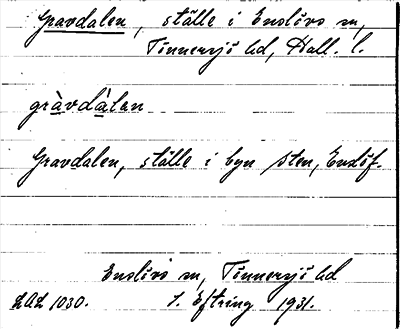 Gravdalen, ställe i Enslövs sn,
Tönnersjö hd, Hall. l.
gràvdàlan
Gravdalen, ställe i byn Sten, Enslöf.
Enslövs sn, Tönnersjö hd
LAL 1030. S. Eftring 1931.